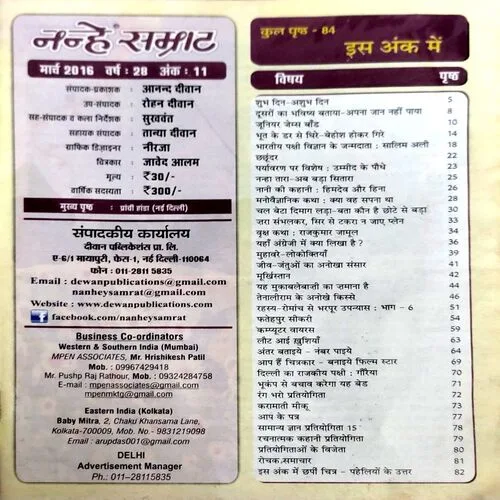 नन्हे सम्राट
मार्च 2016 वर्ष : 28 अंक : 11
संपादक-प्रकाशक : आनन्द दीवान
उप-संपादक : रोहन दीवान
सह-संपादक व कला निर्देशक : सुखवंत
सहायक संपादक : तान्या दीवान
ग्राफिक डिज़ाइनर : नीरजा
चित्रकार : जावेद आलम
मूल्य : ₹30/-
वार्षिक सदस्यता : ₹300/-
मुख्य पृष्ठ : प्रांची हांडा (नई दिल्ली)
संपादकीय कार्यालय
दीवान पब्लिकेशंस प्रा. लि.
ए-6/1 मायापुरी, फेस-1, नई दिल्ली-110064
फोन : 011-2811 5835
Email : dewanpublications@gmail.com
nanheysamrat@gmail.com
Website : www.dewanpublications.com
facebook.com/nanheysamrat
Business Co-ordinators
Western & Southern India (Mumbai)
MPEN ASSOCIATES, Mr. Hrishikesh Patil
Mob. : 09967429418
Mr. Pushp Raj Rathour, Mob. : 09324284758
E-mail : mpenassociates@gmail.com
mpenmktg@gmail.com
Eastern India (Kolkata)
Baby Mitra, 2, Chaku Khansama Lane,
Kolkata-700009, Mob. No.- 9831219098
Email : arupdas001@gmail.com
DELHI
Advertisement Manager
Ph.: 011-28115835
कुल पृष्ठ - 84
इस अंक में
विषय पृष्ठ
शुभ दिन-अशुभ दिन 5
दूसरों का भविष्य बताया-अपना जान नहीं पाया 8
जूनियर जेम्स बाँड 10
भूत के डर से घिरे-बेहोश होकर गिरे 14
भारतीय पक्षी विज्ञान के जन्मदाता : सालिम अली 18
छछूंदर 22
पर्यावरण पर विशेष : उम्मीद के पौधे 23
नन्हा तारा-अब बड़ा सितारा 25
नानी की कहानी : हिमदेव और हिना 26
मनोवैज्ञानिक कथा : क्या वह सपना था 28
चल बेटा दिमाग लड़ा-बता कौन है छोटे से बड़ा 30
ज़रा संभलकर, सिर से टकरा न जाए प्लेन 33
वृक्ष कथा : राजकुमार जामूल 34
यहाँ अंग्रेजी में क्या लिखा है ? 36
मुहावरे-लोकोक्तियाँ 39
जीव-जंतुओं का अनोखा संसार 41
मूर्खिस्तान 42
यह मुकाबलेबाजी का जमाना है 44
तेनालीराम के अनोखे किस्से 46
रहस्य-रोमांच से भरपूर उपन्यास : भाग - 6 51
फतेहपुर सीकरी 54
कम्प्यूटर वायरस 59
लौट आई खुशियाँ 63
अंतर बताइये - नंबर पाइये 64
आप हैं चित्रकार - बनाइये फिल्म स्टार 69
दिल्ली का राजकीय पक्षी : गौरैया 70
भूकंप से बचाव करेगा यह बेड 71
रंग भरो प्रतियोगिता 72
करामाती मीकू 73
आप के पत्र 77
सामान्य ज्ञान प्रतियोगिता 15 78
रचनात्मक कहानी प्रतियोगिता 79
प्रतियोगिताओं के विजेता 80
रोचक.समाचार 81
इस अंक में छपीं चित्र - पहेलियों के उत्तर 82